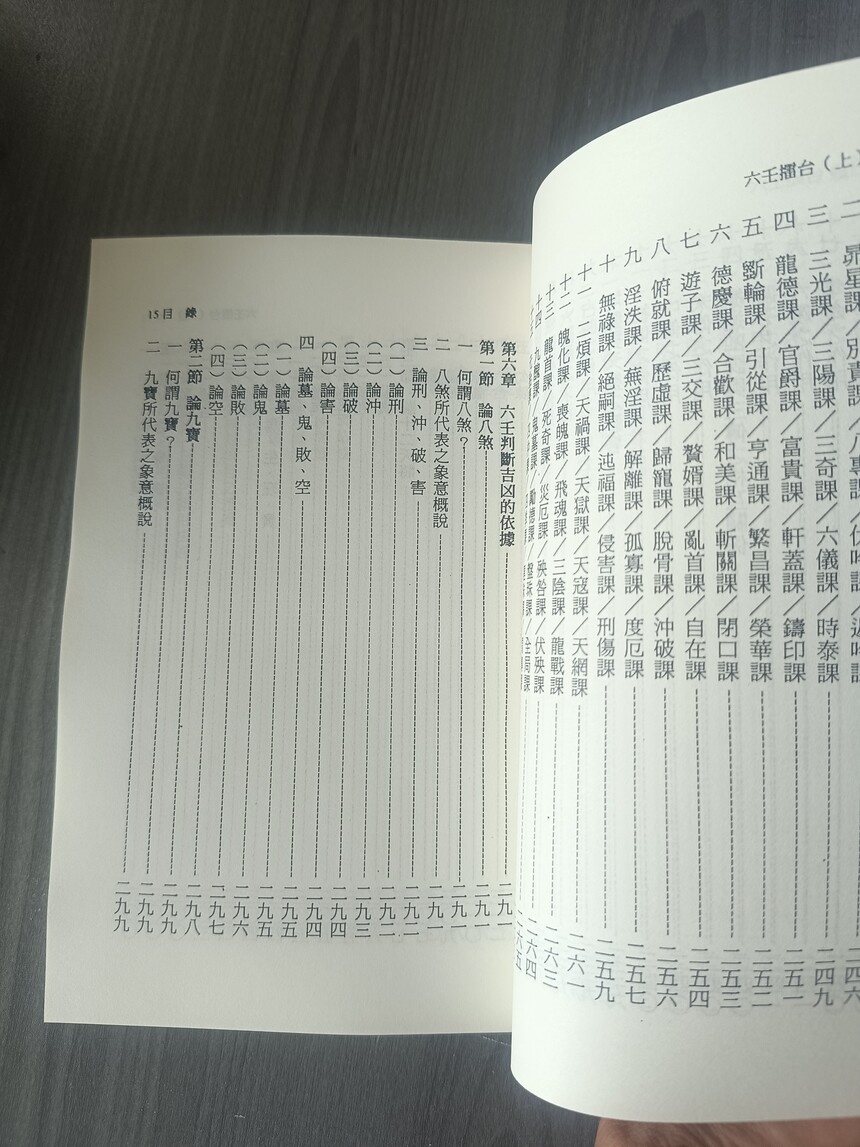 六壬擂台（上）
三 三光課／三陽課／三奇課／六儀課／時泰課 二四九
四 龍德課／官爵課／富貴課／軒蓋課／鑄印課 二五一
五 斲輪課／引從課／亨通課／繁昌課／榮華課 二五二
六 德慶課／合歡課／和美課／斬關課／閉口課 二五三
七 遊子課／三交課／贅婿課／亂首課／自在課 二五四
八 俯就課／歷虛課／歸寵課／脫骨課／沖破課 二五六
九 淫泆課／蕪淫課／解離課／孤寡課／度厄課 二五七
十 無祿課／絕嗣課／迍福課／侵害課／刑傷課 二五九
十一 二煩課／天禍課／天獄課／天寇課／天網課 二六一
十二 魄化課／喪魄課／飛魂課／三陰課／龍戰課 二六三
十三 龍首課／死奇課／災厄課／殃咎課／伏殃課 二六四
十四 九醜課／鬼墓課／勵德課／盤珠課／全局課 二六五
15 目 錄
第六章 六壬判斷吉凶的依據 二九一
第一節 論八煞 二九一
一 何謂八煞？ 二九一
二 八煞所代表之象意概說 二九一
三 論刑、沖、破、害 二九二
（一）論刑 二九二
（二）論沖 二九三
（三）論破 二九四
（四）論害 二九四
四 論墓、鬼、敗、空 二九五
（一）論墓 二九五
（二）論鬼 二九五
（三）論敗 二九六
（四）論空 二九七
第二節 論九寶 二九八
一 何謂九寶？ 二九九
二 九寶所代表之象意概說 二九九